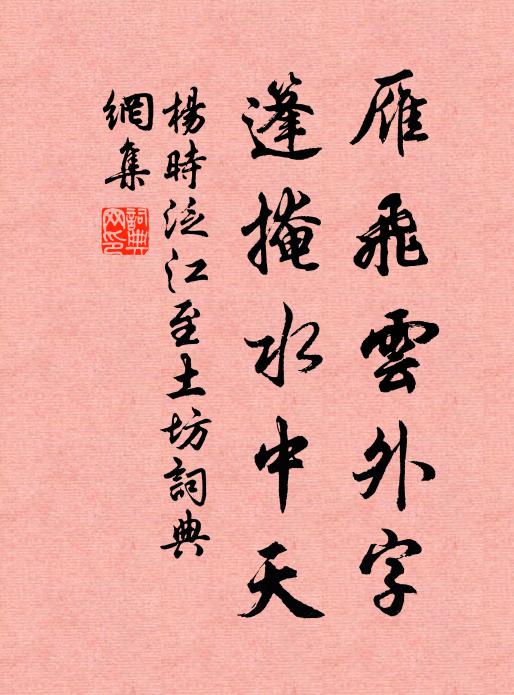 雁飛雲外字
蓬掩水中天
楊時泛江至土坊詞典
網集
詞典網印